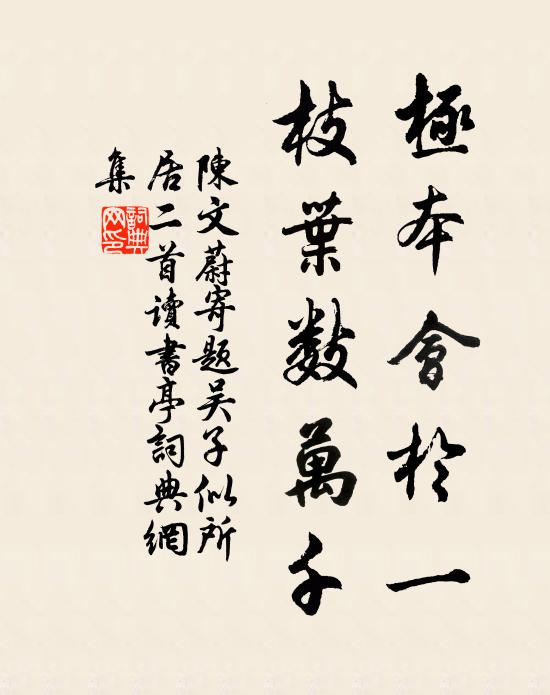 極本會於一
枝葉數萬千
陳文蔚寄題吴子似所
居二首讀書亭詞典網
集
詞典
网印